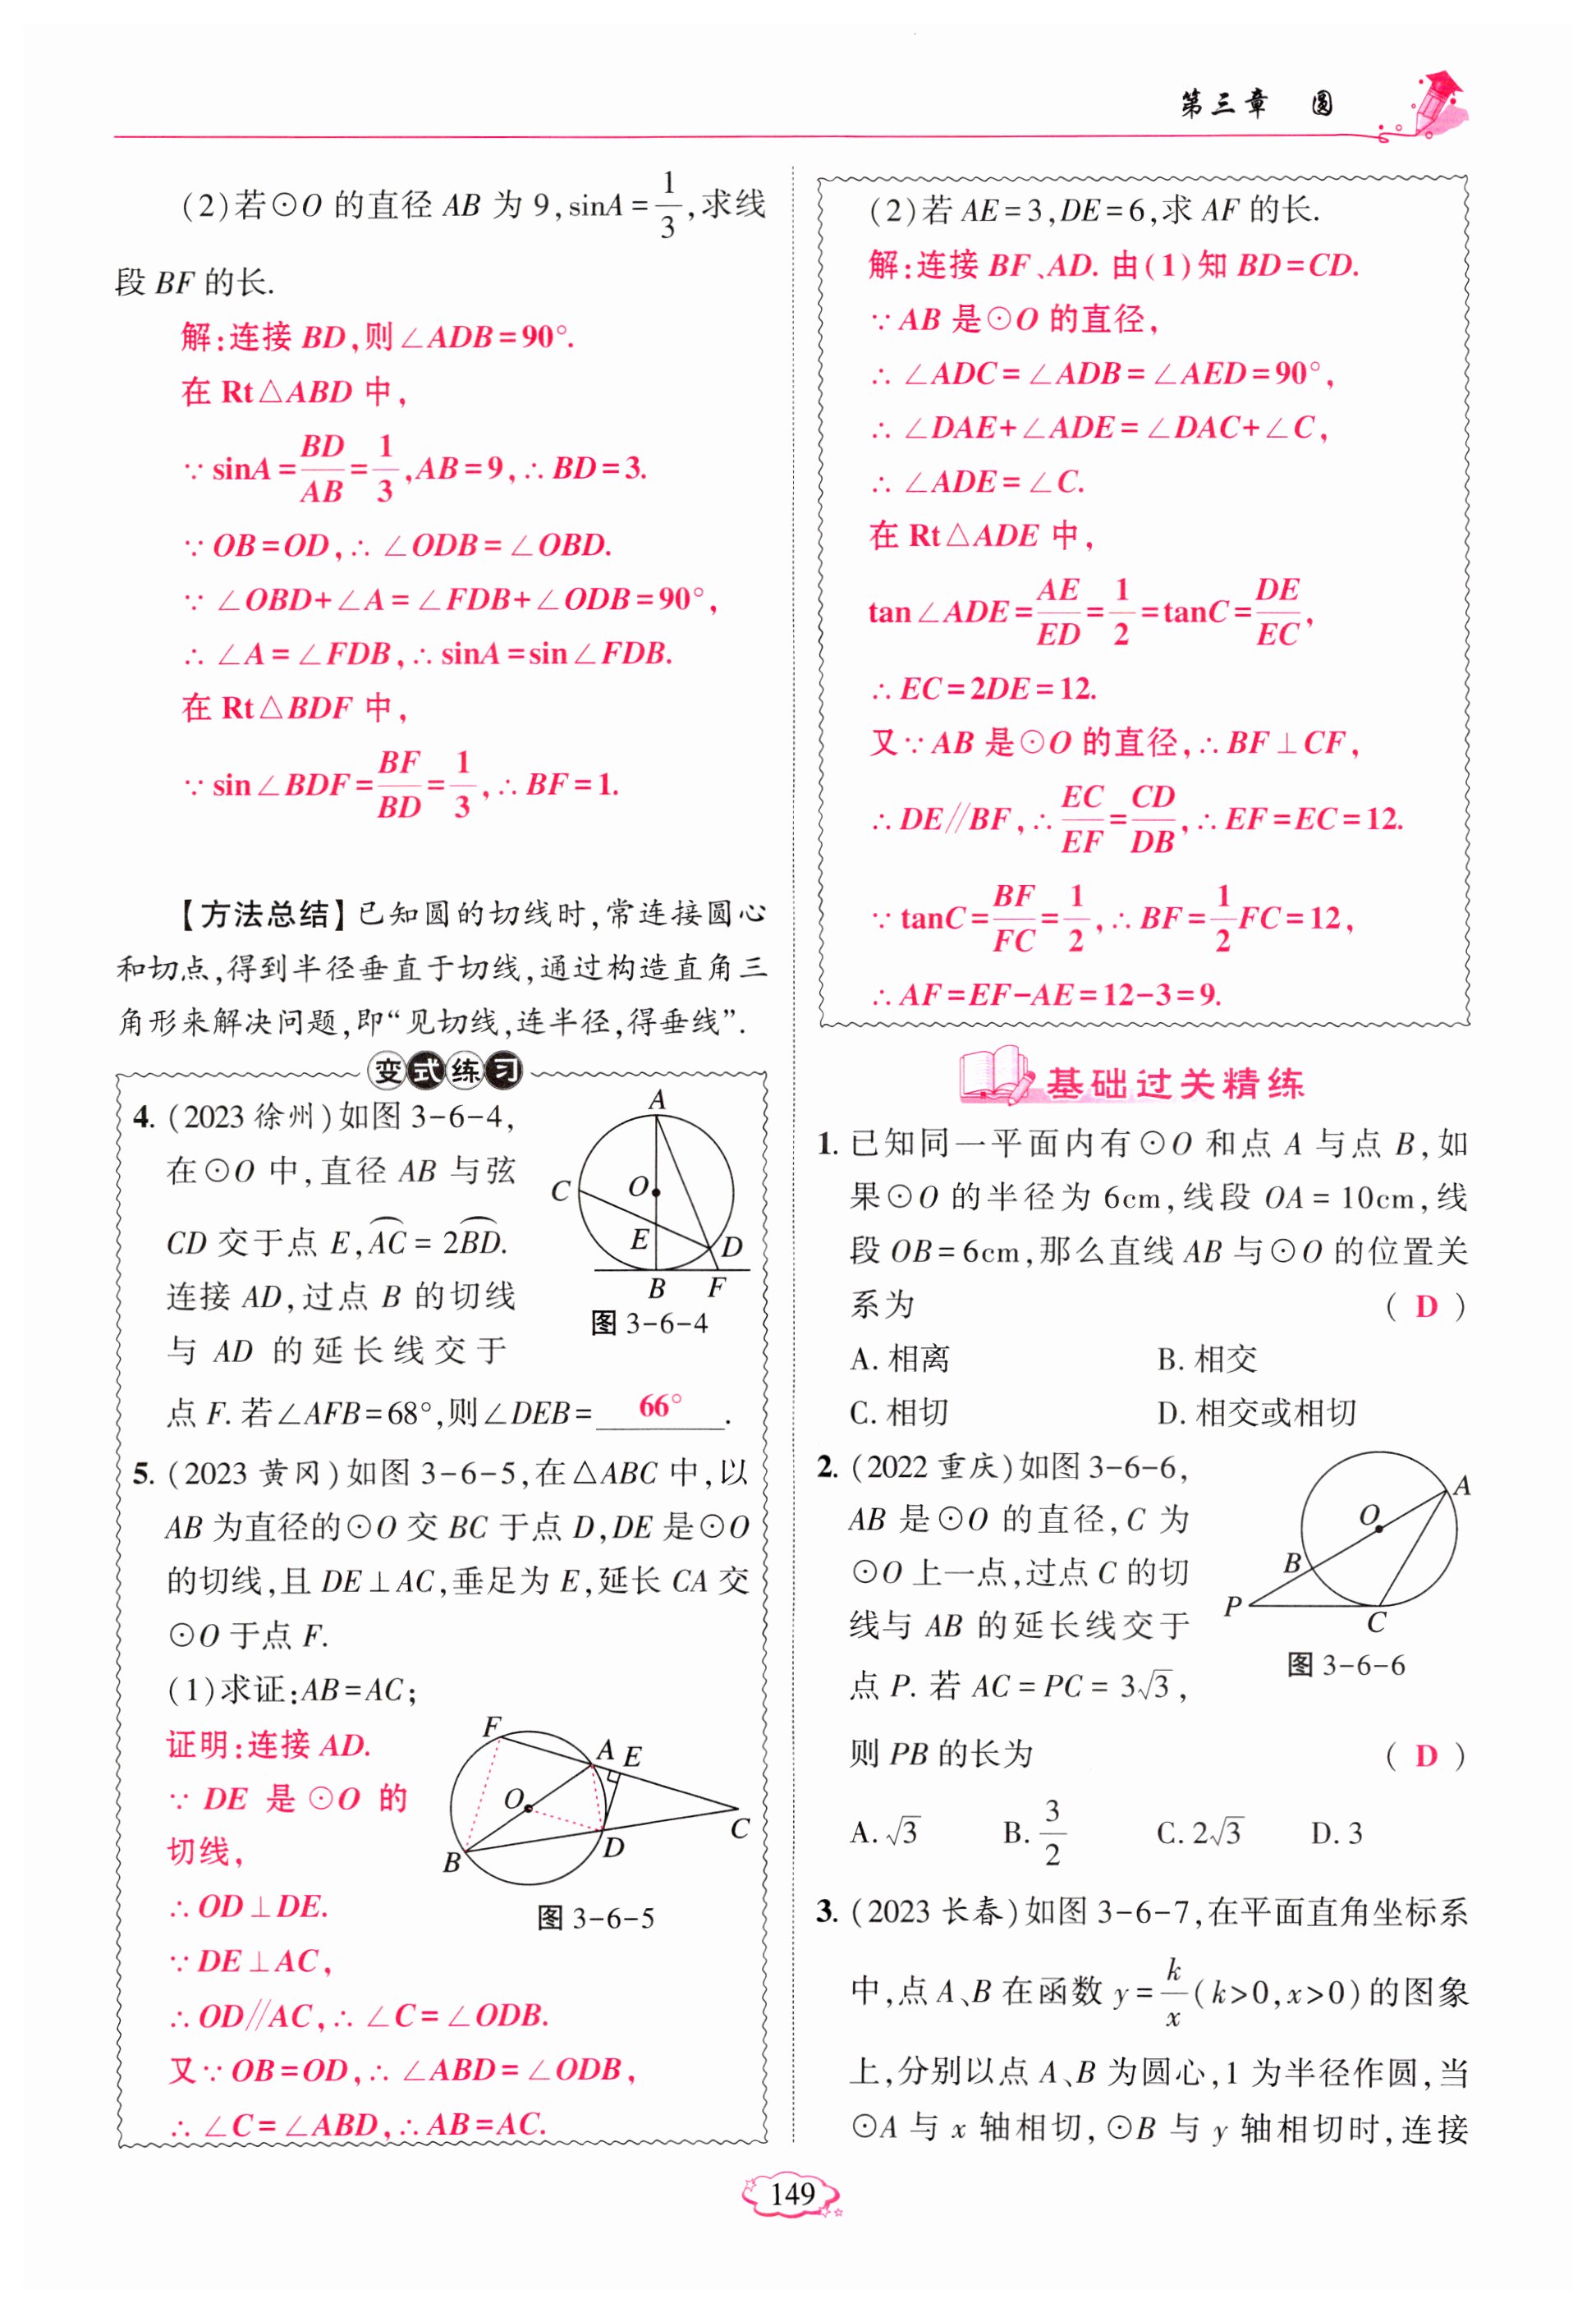 第三章 圆
(2)若⊙O 的直径 AB 为 9,sinA=1/3,求线
段 BF 的长.
解:连接 BD,则∠ADB=90°.
在 Rt△ABD 中,
∵ sinA=BD/AB=1/3,AB=9,∴ BD=3.
∵ OB=OD,∴ ∠ODB=∠OBD.
∵ ∠OBD+∠A=∠FDB+∠ODB=90°,
∴ ∠A=∠FDB,∴ sinA=sin∠FDB.
在 Rt△BDF 中,
∵ sin∠BDF=BF/BD=1/3,∴ BF=1.
【方法总结】已知圆的切线时,常连接圆心
和切点,得到半径垂直于切线,通过构造直角三
角形来解决问题,即“见切线,连半径,得垂线”.
变式练习
4. (2023 徐州)如图 3-6-4,
在⊙O 中,直径 AB 与弦
CD 交于点 E,A͡C = 2B͡D.
连接 AD,过点 B 的切线
与 AD 的延长线交于
点 F. 若∠AFB=68°,则∠DEB= 66° .
A
C
O
E
D
B
F
图 3-6-4
5. (2023 黄冈)如图 3-6-5,在△ABC 中,以
AB 为直径的⊙O 交 BC 于点 D,DE 是⊙O
的切线,且 DE⊥AC,垂足为 E,延长 CA 交
⊙O 于点 F.
(1)求证:AB=AC;
证明:连接 AD.
∵ DE 是⊙O 的
切线,
∴ OD⊥DE.
∵ DE⊥AC,
∴ OD∥AC,∴ ∠C=∠ODB.
又∵ OB=OD,∴ ∠ABD=∠ODB,
∴ ∠C=∠ABD,∴ AB=AC.
F
A
E
O
C
B
D
图 3-6-5
(2)若 AE=3,DE=6,求 AF 的长.
解:连接 BF、AD. 由(1)知 BD=CD.
∵ AB 是⊙O 的直径,
∴ ∠ADC=∠ADB=∠AED=90°,
∴ ∠DAE+∠ADE=∠DAC+∠C,
∴ ∠ADE=∠C.
在 Rt△ADE 中,
tan∠ADE=AE/ED=1/2=tanC=DE/EC,
∴ EC=2DE=12.
又∵ AB 是⊙O 的直径,∴ BF⊥CF,
∴ DE∥BF,∴ EC/EF=CD/DB,∴ EF=EC=12.
∵ tanC=BF/FC=1/2,∴ BF=1/2FC=12,
∴ AF=EF-AE=12-3=9.
基础过关精练
1. 已知同一平面内有⊙O 和点 A 与点 B,如
果⊙O 的半径为 6cm,线段 OA=10cm,线
段 OB=6cm,那么直线 AB 与⊙O 的位置关
系为 ( D )
A. 相离 B. 相交
C. 相切 D. 相交或相切
2. (2022 重庆)如图 3-6-6,
AB 是⊙O 的直径,C 为
⊙O 上一点,过点 C 的切
线与 AB 的延长线交于
点 P. 若 AC=PC=3√3,
则 PB 的长为 ( D )
A. √3 B. 3/2 C. 2√3 D. 3
A
O
B
P
C
图 3-6-6
3. (2023 长春)如图 3-6-7,在平面直角坐标系
中,点 A、B 在函数 y=k/x(k>0,x>0)的图象
上,分别以点 A、B 为圆心,1 为半径作圆,当
⊙A 与 x 轴相切,⊙B 与 y 轴相切时,连接
149